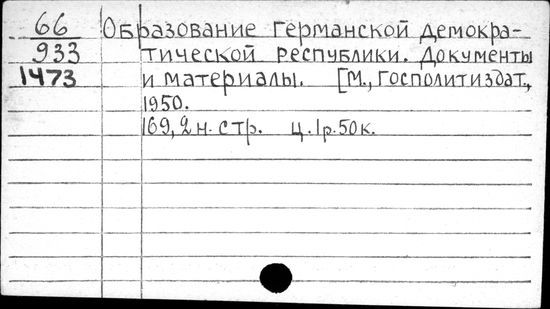 66 Образование Германской Демокра-
933 тической республики. Документы
1473 и материалы. [М., Госполитиздат,
1950.
169, 2 н. стр. ц. 1р. 50к.